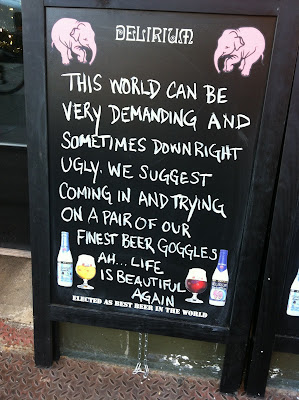 DELIRIUM
THIS WORLD CAN BE
VERY DEMANDING AND
SOMETIMES DOWNRIGHT
UGLY. WE SUGGEST
COMING IN AND TRYING
ON A PAIR OF OUR
FINEST BEER GOGGLES
AH... LIFE
IS BEAUTIFUL
AGAIN
ELECTED AS BEST BEER IN THE WORLD